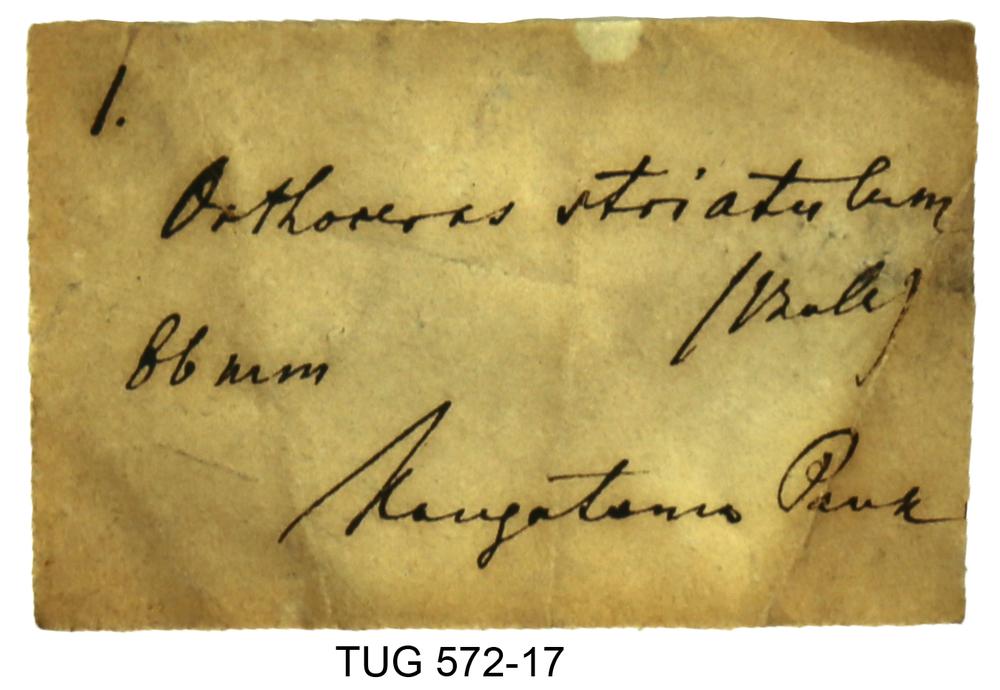 1.
Orthoceras striatulum
66 mm
Kaugatoma Pank
TUG 572-17